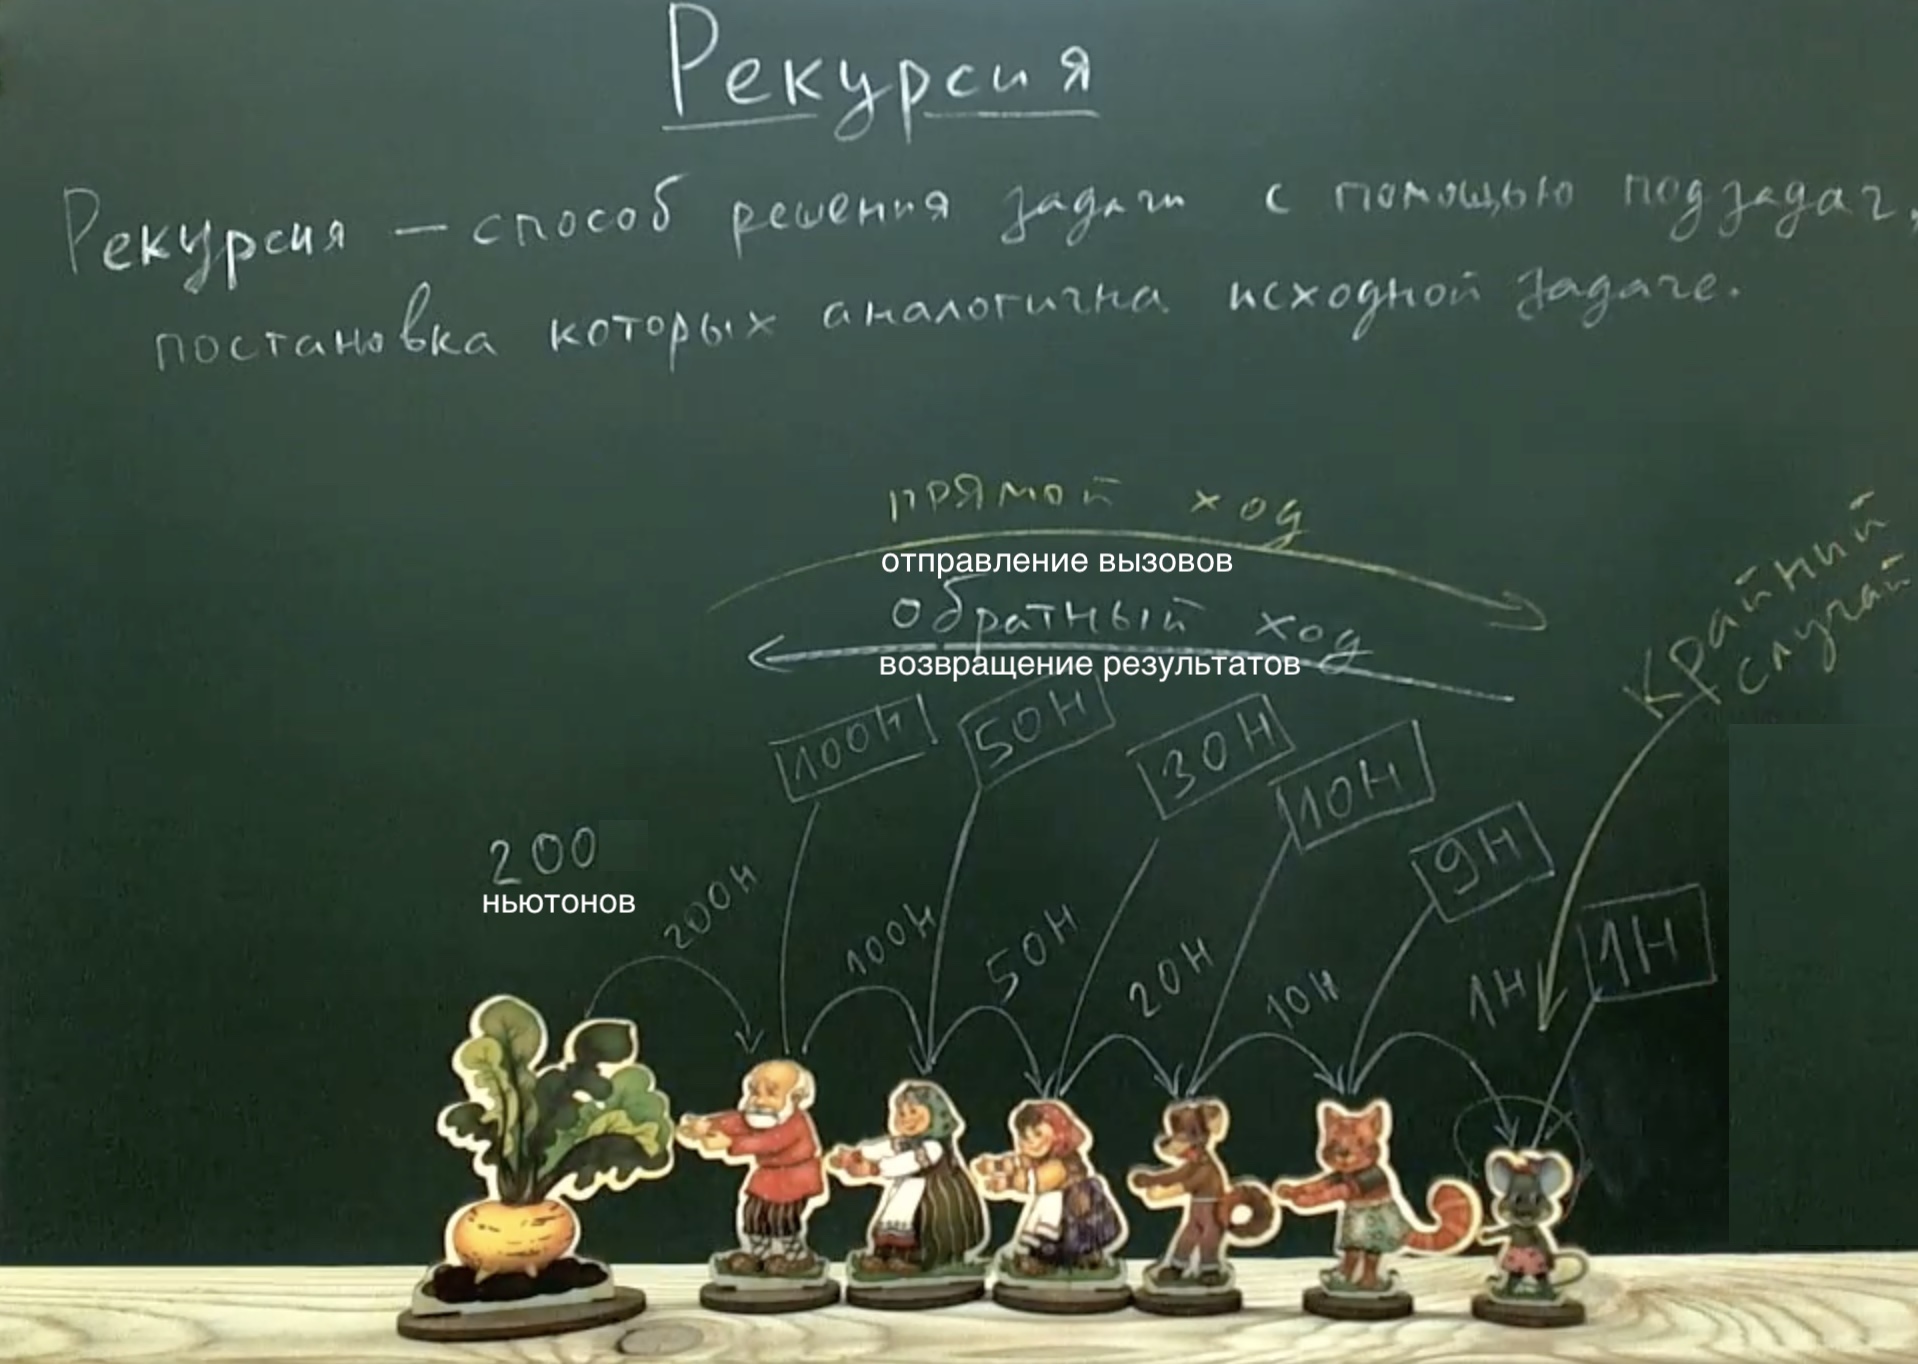 Рекурсия
Рекурсия — способ решения задачи с помощью подзадач,
постановка которых аналогична исходной задаче.
прямой ход
отправление вызовов
обратный ход
возвращение результатов
крайний
случай
100Н
50Н
30Н
10Н
9Н
1Н
200
ньютонов
200Н
100Н
50Н
20Н
10Н
1Н